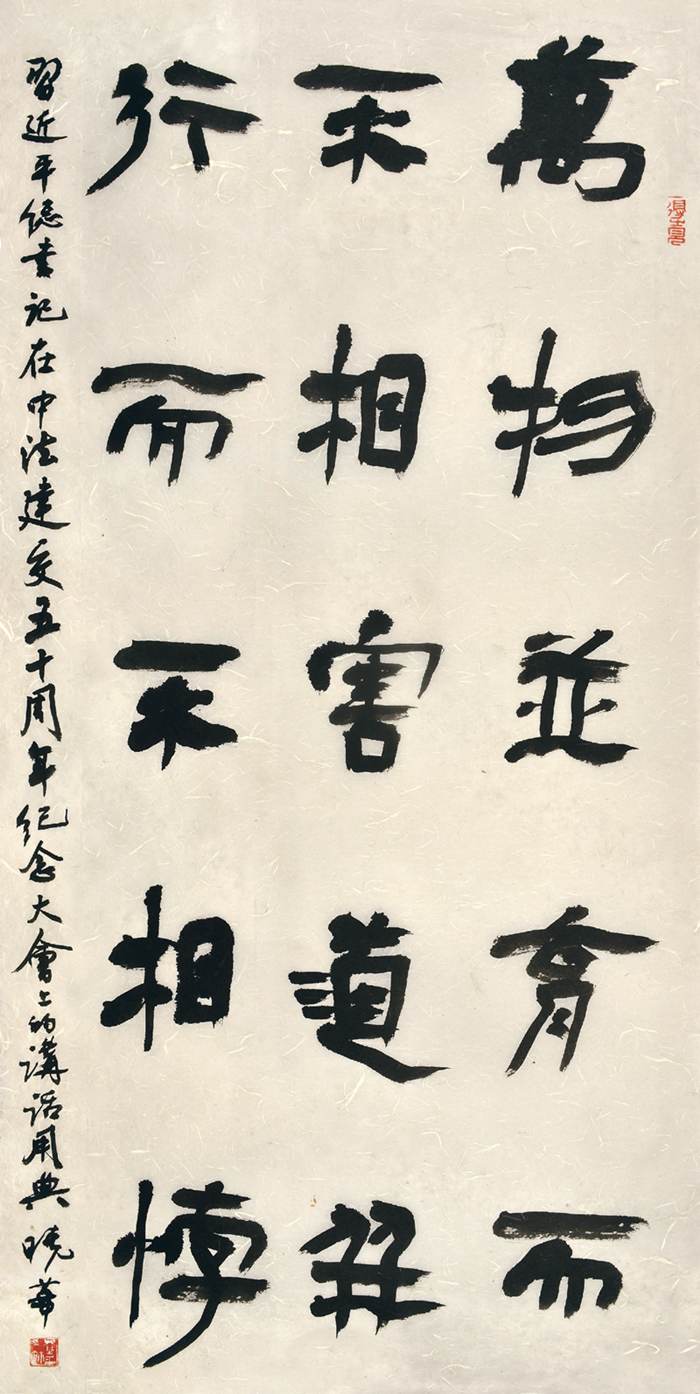 萬物並育而
不相害道并
行而不相悖
習近平總書記在中法建交五十周年紀念大會上的講話用典